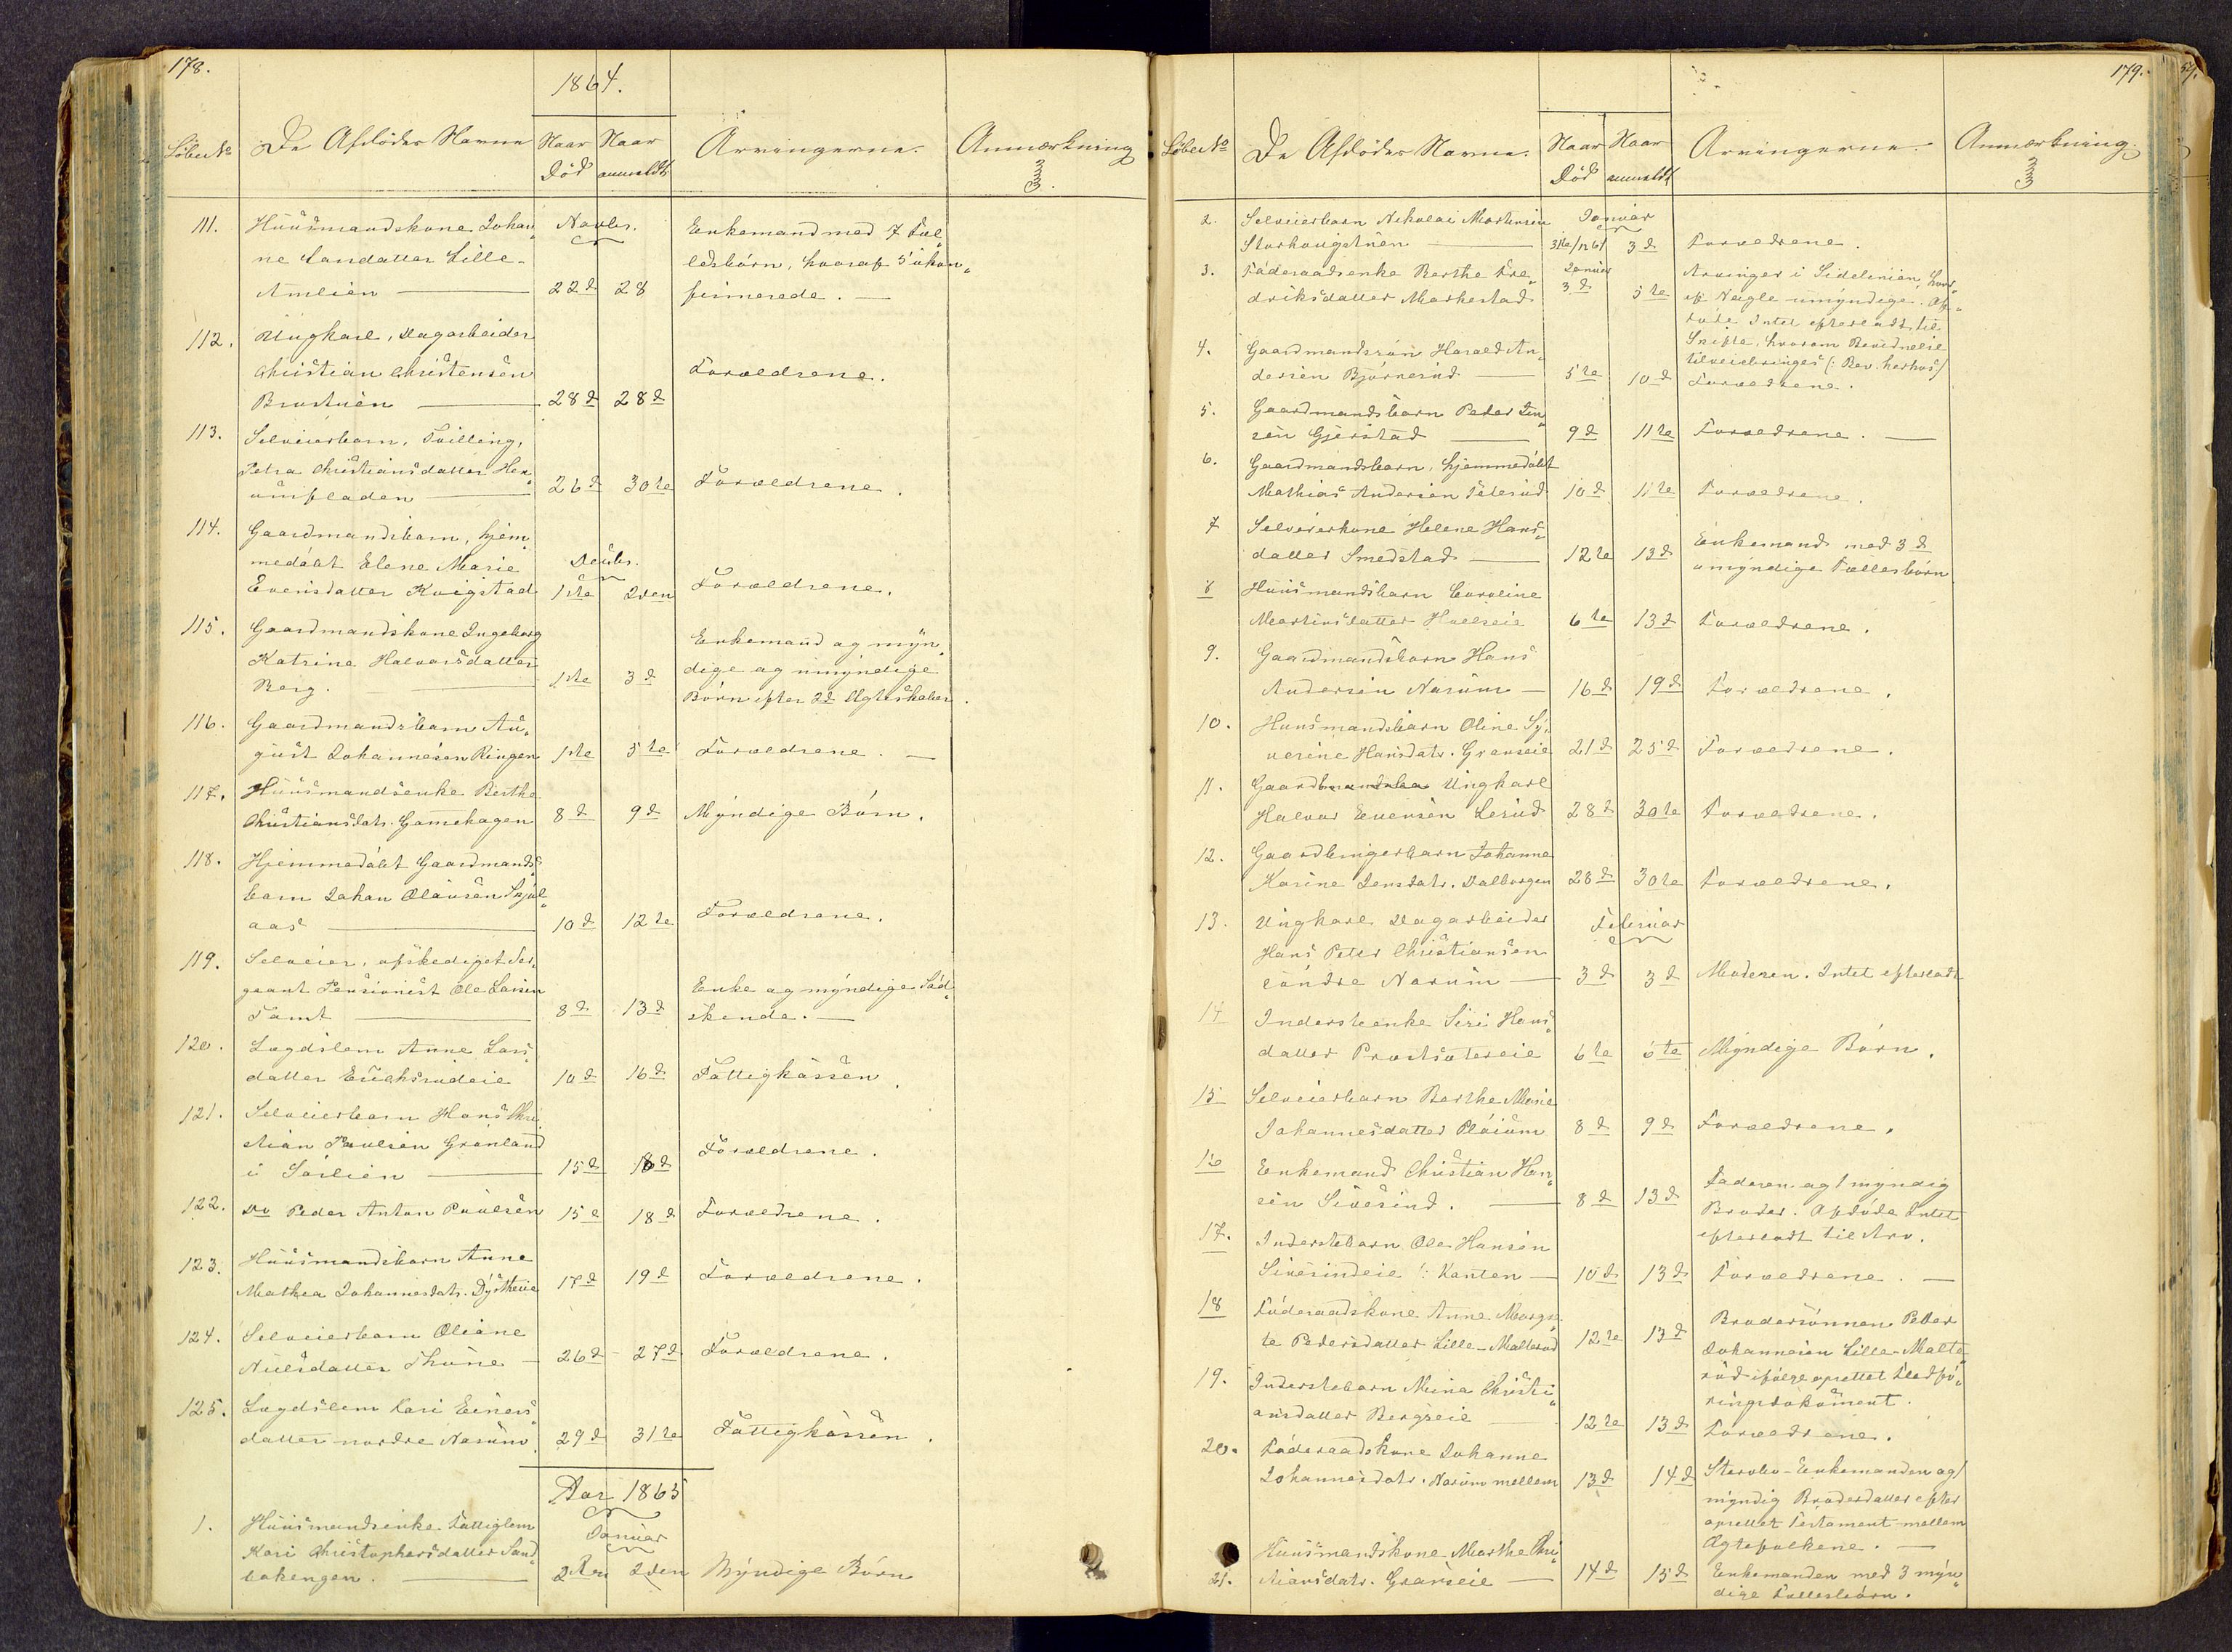 178.
1864.
Löbe No
De Afdödes Navne
Naar Död
Naar anmeldt
Arvingerne.
Anmærkning
111. Huusmandskone Johan„
ne Larsdatter Lille-
Amlien
Novbr.
22d 28
Enkemand med 7 Fæl„
ledsbörn, hvoraf 5 ukon„
firmerede.
112. Ungkarl, Dagarbeider
Christian Christensen
Brustuen
28d 28d
Forældrene.
113. Selveierbarn, Tvilling,
Petra Christiansdatter
26d 30te
Forældrene.
114. Gaardmandsbarn, hjem„
medöbt Elene Marie
Evensdatter Kvigstad
Decbr.
1ste 2den
Forældrene.
115. Gaardmandskone Ingeborg
Katrine Halvorsdatter
Berg.
1ste 3d
Enkemand og myn„
dige og umyndige
Börn efter 2d Ægteskaber.
116. Gaardmandsbarn Au„
gust Johannesen Ringen
1ste 5te
Forældrene.
117. Huusmandsenke Berthe
Christiansdatr. Gamehagen
8d 9d
Myndige Börn.
118. Hjemmedöbt Gaardmands„
barn Johan Olausen Skjøl„
aas
10d 12te
Forældrene.
119. Selveier, afskediget Ser„
geant Pensionist Ole Larsen
Tømt
8d 13d
Enke og myndige Söd„
skende.
120. Lægdslem Anne Lars„
datter Erichsrudeie
10d 16d
Fattigkassen.
121. Selveierbarn Hans Chri
stian Paulsen Grönland
i Sörlien
15d 18d
Forældrene.
122. Do Peder Anton Paulsen
15d 18d
Forældrene.
123. Huusmandsbarn Anne
Mathea Johannesdatr. Dystheeie
17d 19d
Forældrene.
124. Selveierbarn Oliane
Nielsdatter Thune
26d 27d
Forældrene.
125. Lægdslem Kari Einers„
datter nordre Narum
29d 31te
Fattigkassen.
Aar 1865
1. Huusmandsenke Fattiglem
Kari Christophersdatter Sand„
bakengen.
Januar
2den 2den
Myndige Börn
179.
Löbe No
De Afdödes Navne.
Naar Död
Naar anmeldt
Arvingerne.
Anmærkning.
2. Selveierbarn Nikolai Mortensen
Storhougstuen
Januar
31te/12 64 3d
Forældrene.
3. Föderaadsenke Berthe Fre„
driksdatter Markestad
Januar
3d 5te
Arvinger i Sidelinien, hvor„
af Nogle umyndige. Af„
döde Intet efterladt til
Skifte, hvorom Bevidnelse
tilveiebringes (: Bev. herhos)
4. Gaardmandssön Harald An„
dersen Björnerud
5te 10d
Forældrene.
5. Gaardmandsbarn Peder Jen„
sen Gjerstad
9d 11te
Forældrene.
6. Gaardmandsbarn, hjemmedöbt
Mathias Andersen
10d 11te
Forældrene.
7 Selveierkone Helene Hans„
datter Smedstad
12te 13d
Enkemand med 3d
umyndige Fællesbörn
8 Huusmandsbarn Caroline
Martinsdatter
6te 13d
Forældrene.
9. Gaardmandsbarn Hans
Andersen Narum
16d 19d
Forældrene.
10. Huusmandsbarn Oline Sy„
verine Hansdatr. Granseie
21d 25d
Forældrene.
11. Ungkarl
Halvor Evensen Lerud
28d 30te
Forældrene.
12. Gaardbrugerbarn Johanne
Karine Jensdatr. Dalborgen
28d 30te
Forældrene.
13. Ungkarl Dagarbeider
Hans Peter Christiansen
söndre Narum
Februar
3d 3d
Moderen. Intet efterladt
14 Inderstenke Siri Hans„
datter
6te 6te
Myndige Börn.
15 Selveierbarn Berthe Marie
Johannesdatter Plöium
8d 9d
Forældrene.
16 Enkemand Christian Han„
sen Sivesind.
8d 13d
Faderen og 1 myndig
Broder. Afdöde Intet
efterladt til Arv.
17. Inderstebarn Ole Hansen
Sivesindeie /: Kanten
10d 13d
Forældrene.
18 Föderaadskone Anne Margre„
te Pedersdatter Lille-Malterud
12te 13d
Brodersönnen Peder
Johannesen Lille-Malte„
rud ifölge oprettet Fledfö„
ringsdokument.
19. Inderstebarn Mina Christi„
ansdatter Bergseie
12te 13d
Forældrene.
20. Föderaadskone Johanne
Johannesdatr. Narum mellem
13d 14d
Stervbo-Enkemanden og 1
myndig Broderdatter efter
oprettet Testament mellem
Ægtefolkene.
21. Huusmandskone Marthe Chri„
stiansdatr. Granseie
14d 15d
Enkemanden med 3 myn„
dige Fællesbörn.